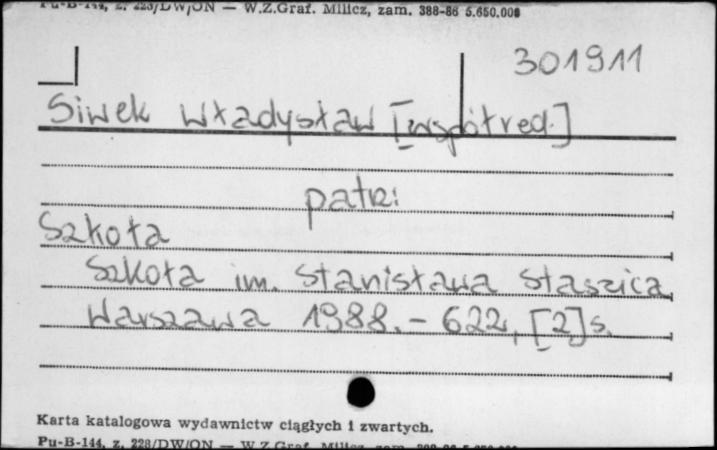 Pu-B-144, z. 228/DW/ON — W.Z.Graf. Milicz, zam. 388-86 5.650.000
301911
Siwek Władysław [współred.]
patrz:
Szkoła
Szkoła im. Stanisława Staszica
Warszawa 1988. - 622, [2] s.
Karta katalogowa wydawnictw ciągłych i zwartych.
Pu-B-144, z. 228/DW/ON — W.Z.Graf. Milicz, zam.